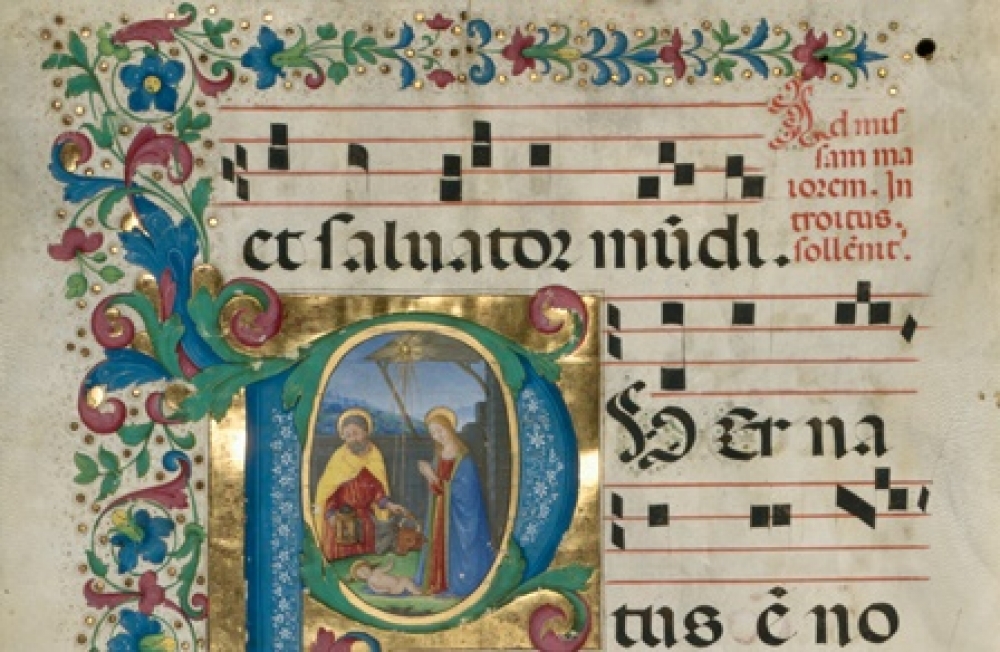 et saluator mūdi.
Ad mis
sam ma
iorem. In
troitus.
sollēnit.
P
UER na
tus ē no